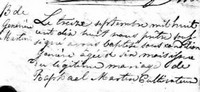 B de
Germain
Martin
Le treize septembre mil huit
cent dix huit nous prêtre sous
signé avons baptisé sous condition
Germain âgé de six mois issu
du légitime mariage de
Raphael Martin Cultivateur